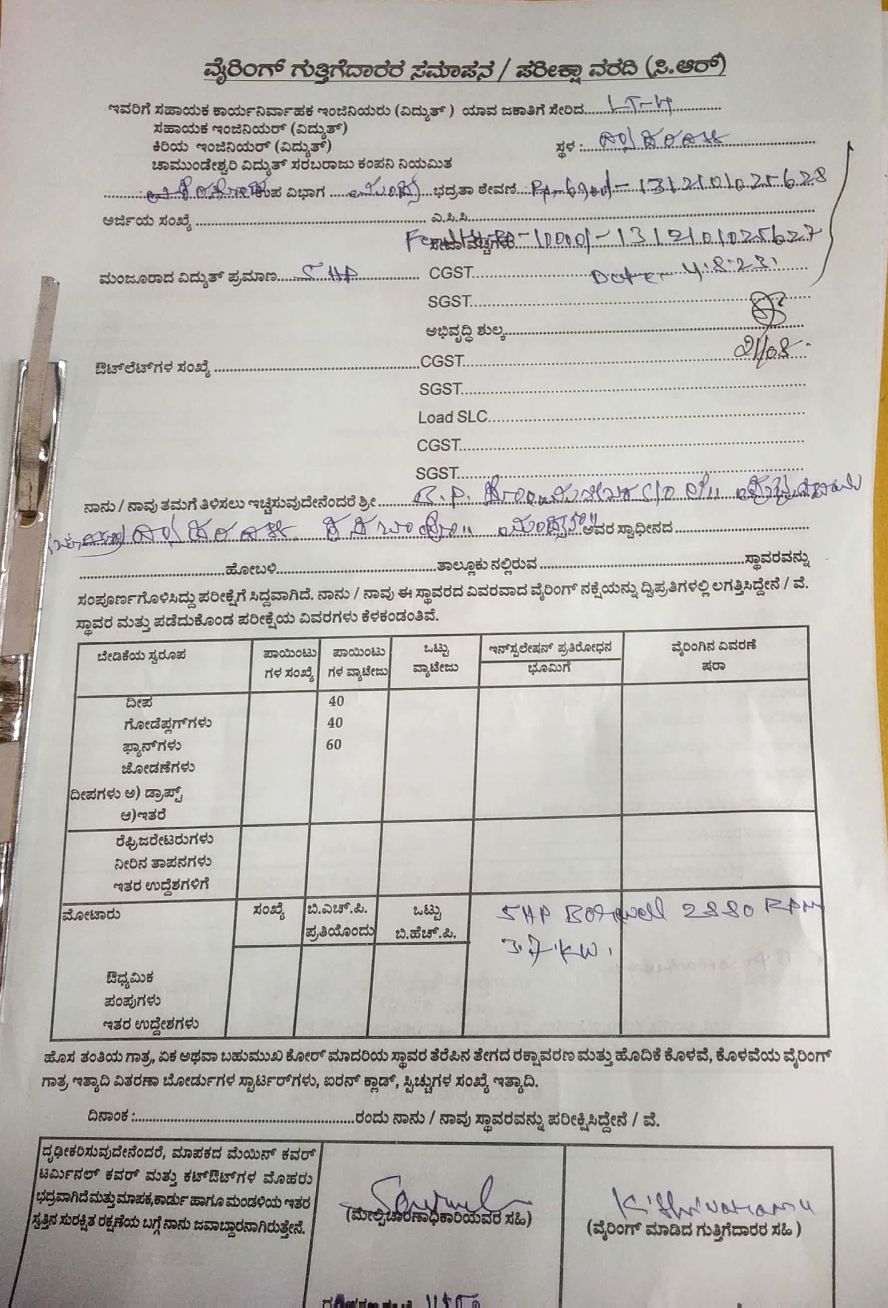 ವೈರಿಂಗ್ ಗುತ್ತಿಗೆದಾರರ ಸಮಾಪನ / ಪರೀಕ್ಷಾ ವರದಿ (ಸಿ.ಆರ್)
ಇವರಿಗೆ ಸಹಾಯಕ ಕಾರ್ಯನಿರ್ವಾಹಕ ಇಂಜಿನಿಯರು (ವಿದ್ಯುತ್ ) ಯಾವ ಜಕಾತಿಗೆ ಸೇರಿದ.....LT-4
ಸಹಾಯಕ ಇಂಜಿನಿಯರ್ (ವಿದ್ಯುತ್)
ಕಿರಿಯ ಇಂಜಿನಿಯರ್ (ವಿದ್ಯುತ್) ಸ್ಥಳ :
ಚಾಮುಂಡೇಶ್ವರಿ ವಿದ್ಯುತ್ ಸರಬರಾಜು ಕಂಪನಿ ನಿಯಮಿತ
ಉಪ ವಿಭಾಗ ..... ಮಂಡ್ಯ ಭದ್ರತಾ ಠೇವಣಿ - 1312101025628
ಅರ್ಜಿಯ ಸಂಖ್ಯೆ ..... ಎ.ಸಿ.ಸಿ.....
10000/- 1312101025627
ಮಂಜೂರಾದ ವಿದ್ಯುತ್ ಪ್ರಮಾಣ.....5 HP..... CGST..... Date 4.8.23.
SGST.....
ಅಭಿವೃದ್ಧಿ ಶುಲ್ಕ.....
ಔಟ್‌ಲೆಟ್‌ಗಳ ಸಂಖ್ಯೆ .....CGST.....
SGST.....
Load SLC.....
CGST.....
SGST.....
ನಾನು / ನಾವು ತಮಗೆ ತಿಳಿಸಲು ಇಚ್ಚಿಸುವುದೇನೆಂದರೆ ಶ್ರೀ.....
ಮಂಡ್ಯ ಅವರ ಸ್ವಾಧೀನದ.....
.....ಹೋಬಳಿ.....ತಾಲ್ಲೂಕು ನಲ್ಲಿರುವ .....ಸ್ಥಾವರವನ್ನು
ಸಂಪೂರ್ಣಗೊಳಿಸಿದ್ದು ಪರೀಕ್ಷೆಗೆ ಸಿದ್ದವಾಗಿದೆ. ನಾನು / ನಾವು ಈ ಸ್ಥಾವರದ ವಿವರವಾದ ವೈರಿಂಗ್ ನಕ್ಷೆಯನ್ನು ದ್ವಿಪ್ರತಿಗಳಲ್ಲಿ ಲಗತ್ತಿಸಿದ್ದೇನೆ / ವೆ.
ಸ್ಥಾವರ ಮತ್ತು ಪಡೆದುಕೊಂಡ ಪರೀಕ್ಷೆಯ ವಿವರಗಳು ಕೆಳಕಂಡಂತಿವೆ.
ಬೇಡಿಕೆಯ ಸ್ವರೂಪ ಪಾಯಿಂಟು ಪಾಯಿಂಟು ಒಟ್ಟು ಇನ್‌ಸ್ಪಲೇಷನ್ ಪ್ರತಿರೋಧನ ವೈರಿಂಗಿನ ವಿವರಣೆ
ಗಳ ಸಂಖ್ಯೆ ಗಳ ವ್ಯಾಟೇಜು ವ್ಯಾಟೇಜು ಭೂಮಿಗೆ ಷರಾ
ದೀಪ 40
ಗೋಡೆಪ್ಲಗ್‌ಗಳು 40
ಫ್ಯಾನ್‌ಗಳು 60
ಜೋಡಣೆಗಳು
ದೀಪಗಳು ಅ) ಡ್ರಾಪ್ಸ್
ಆ)ಇತರೆ
ರೆಫ್ರಿಜರೇಟರುಗಳು
ನೀರಿನ ತಾಪನಗಳು
ಇತರ ಉದ್ದೇಶಗಳಿಗೆ
ಮೋಟಾರು ಸಂಖ್ಯೆ ಬಿ.ಎಚ್.ಪಿ. ಒಟ್ಟು 5 HP Borewell 2880 RPM
ಪ್ರತಿಯೊಂದು ಬಿ.ಹೆಚ್.ಪಿ. 3.7 KW.
ಔಧ್ಯಮಿಕ
ಪಂಪುಗಳು
ಇತರ ಉದ್ದೇಶಗಳು
ಹೊಸ ತಂತಿಯ ಗಾತ್ರ, ಏಕ ಅಥವಾ ಬಹುಮುಖಿ ಕೋರ್ ಮಾದರಿಯ ಸ್ಥಾವರ ತೆರೆಪಿನ ತೇಗದ ರಕ್ಷಾವರಣ ಮತ್ತು ಹೊದಿಕೆ ಕೊಳವೆ, ಕೊಳವೆಯ ವೈರಿಂಗ್
ಗಾತ್ರ ಇತ್ಯಾದಿ ವಿತರಣಾ ಬೋರ್ಡುಗಳ ಸ್ಟಾರ್ಟರ್‌ಗಳು, ಐರನ್ ಕ್ಲಾಡ್, ಸ್ವಿಚ್ಚುಗಳ ಸಂಖ್ಯೆ ಇತ್ಯಾದಿ.
ದಿನಾಂಕ :.....ರಂದು ನಾನು / ನಾವು ಸ್ಥಾವರವನ್ನು ಪರೀಕ್ಷಿಸಿದ್ದೇನೆ / ವೆ.
ದೃಢೀಕರಿಸುವುದೇನೆಂದರೆ, ಮಾಪಕದ ಮೆಯಿನ್ ಕವರ್
ಟರ್ಮಿನಲ್ ಕವರ್ ಮತ್ತು ಕಟ್‌ಔಟ್‌ಗಳ ಮೊಹರು
ಭದ್ರವಾಗಿದೆ ಮತ್ತು ಮಾಪಕ,ಕಾರ್ಡು ಹಾಗೂ ಮಂಡಳಿಯ ಇತರ
ಸ್ವತ್ತಿನ ಸುರಕ್ಷಿತ ರಕ್ಷಣೆಯ ಬಗ್ಗೆ ನಾನು ಜವಾಬ್ದಾರನಾಗಿರುತ್ತೇನೆ.
(ಮೇಲ್ವಿಚಾರಣಾಧಿಕಾರಿಯವರ ಸಹಿ) (ವೈರಿಂಗ್ ಮಾಡಿದ ಗುತ್ತಿಗೆದಾರರ ಸಹಿ )